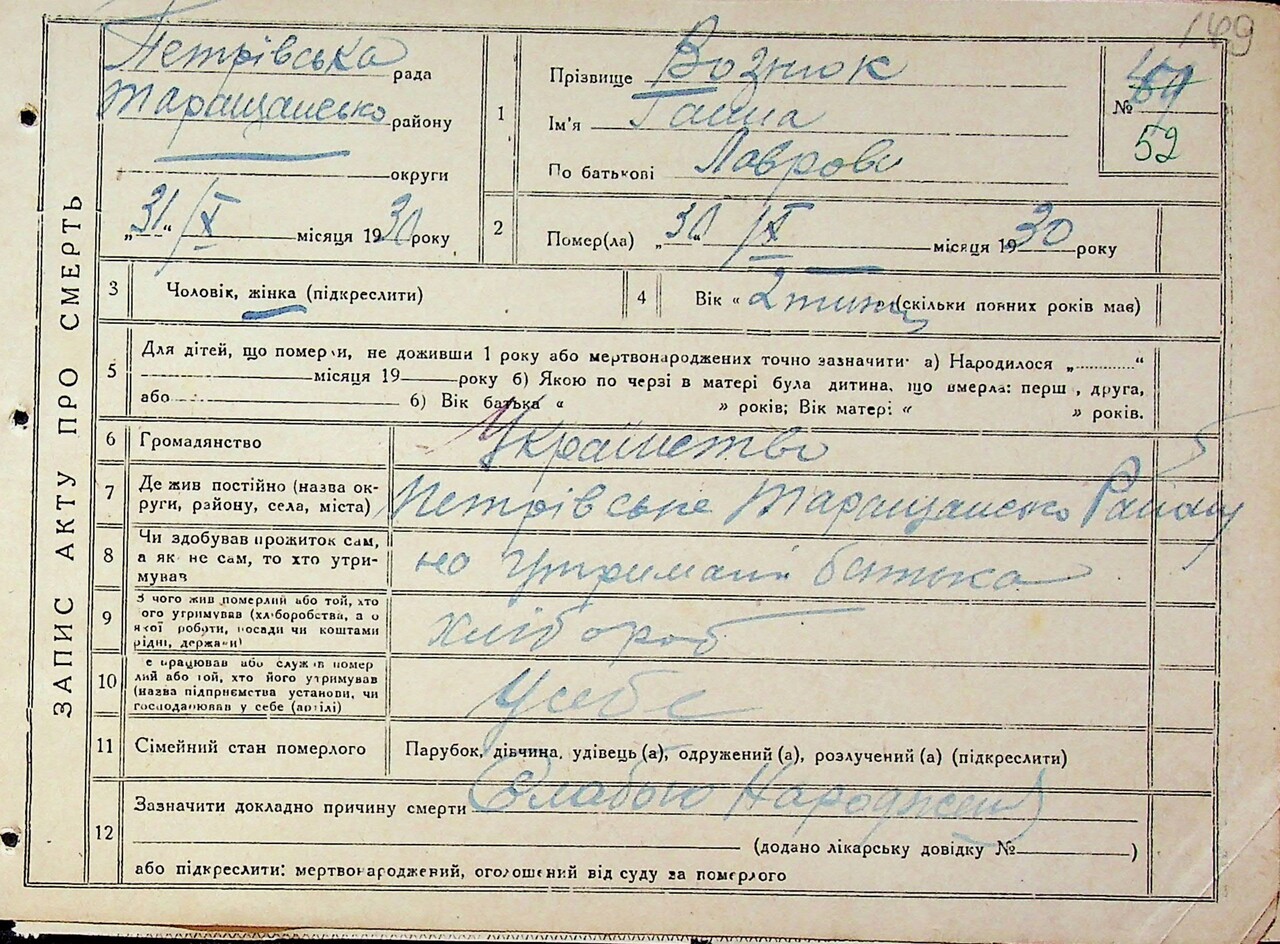 169
ЗАПИС АКТУ ПРО СМЕРТЬ
Петрівська рада
Таращансько району
округи
„31“ /X місяця 1930 року
1
Прізвище Вознюк
Ім'я Ганна
По батькові Лаврови
№
52
2
Помер(ла) „30“ /X місяця 1930 року
3
Чоловік, жінка (підкреслити)
4
Вік « 2 тижн » (скільки повних років має)
5
Для дітей, що померли, не доживши 1 року або мертвонароджених точно зазначити: а) Народилося „ “
місяця 19 року б) Якою по черзі в матері була дитина, що вмерла: перш , друга,
або б) Вік батька « » років; Вік матері « » років.
6
Громадянство
Українство
7
Де жив постійно (назва ок-
руги, району, села, міста)
Петрівське Таращансько Району
8
Чи здобував прожиток сам,
а як не сам, то хто утри-
мував
на утримані батька
9
З чого жив померлий або той, хто
ого утримував (хліборобства, а о
якої роботи, посади чи коштами
рідні, держави)
хлібороб
10
е працював або служив помер
лий або той, хто його утримував
(назва підприємства установи, чи
господарював у себе (артілі)
У себе
11
Сімейний стан померлого
Парубок, дівчина, удівець (а), одружений (а), розлучений (а) (підкреслити)
12
Зазначити докладно причину смерти (Слабою Народжен)
(додано лікарську довідку № )
або підкреслити: мертвонароджений, оголошений від суду за померлого